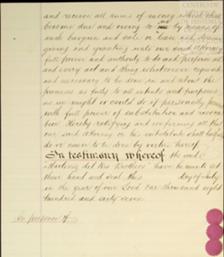 and receive all sums of money which shall
become due and owing to by means of
such bargain and sale or lease and
giving and granting unto our said attorney
full power and authority to do and perform all
and every act and thing whatsoever requisite
and necessary to be done in and about the
premises as fully to all intents and purposes
as we might or could do if personally
with full power of substitution and
hereby ratifying and confirming all that
our said attorney or his substitute shall lawfully
do or cause to be done by virtue hereof
In testimony whereof the said
Brothers have hereunto set
their hand and seal this day of July
in the year of our Lord one thousand eight
hundred and sixty
In presence of